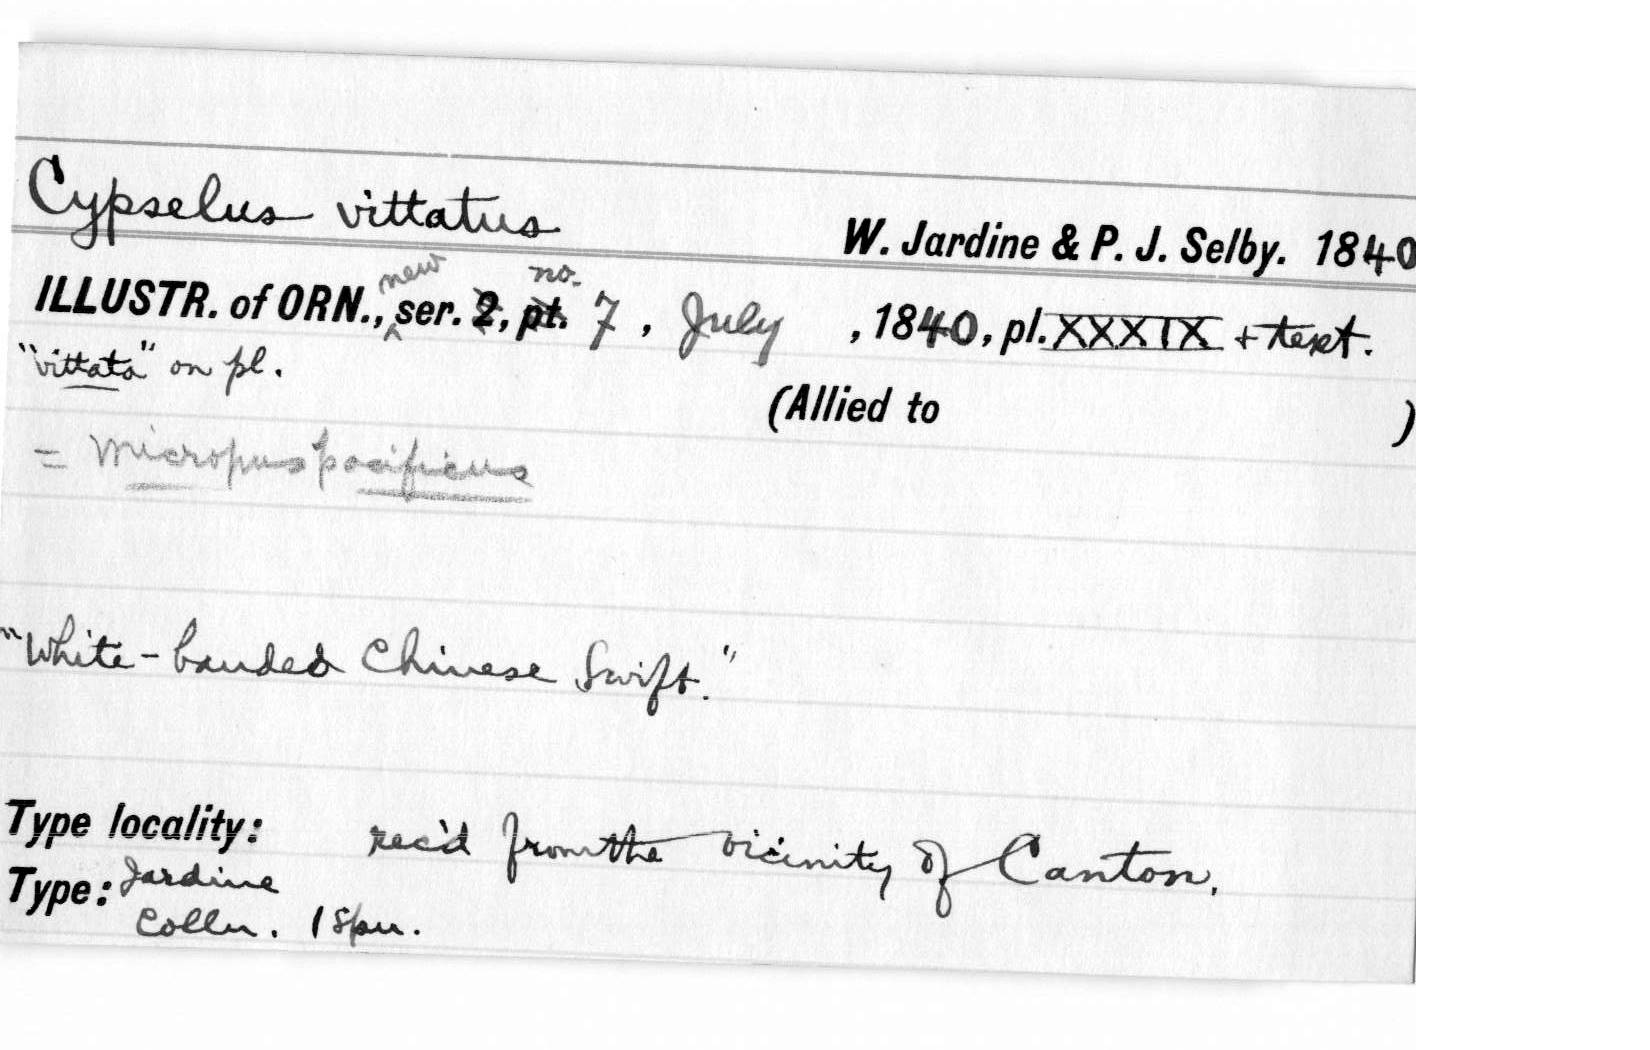 Cypselus vittatus
W. Jardine & P. J. Selby. 1840
ILLUSTR. of ORN., new ser. 2, pt. no. 7, July , 1840, pl. XXXIX + text.
"vittata" on pl.
(Allied to )
= Micropus pacificus
"White-banded Chinese Swift."
Type locality: rec'd from the vicinity of Canton.
Type: Jardine
Colln. 1 spn.